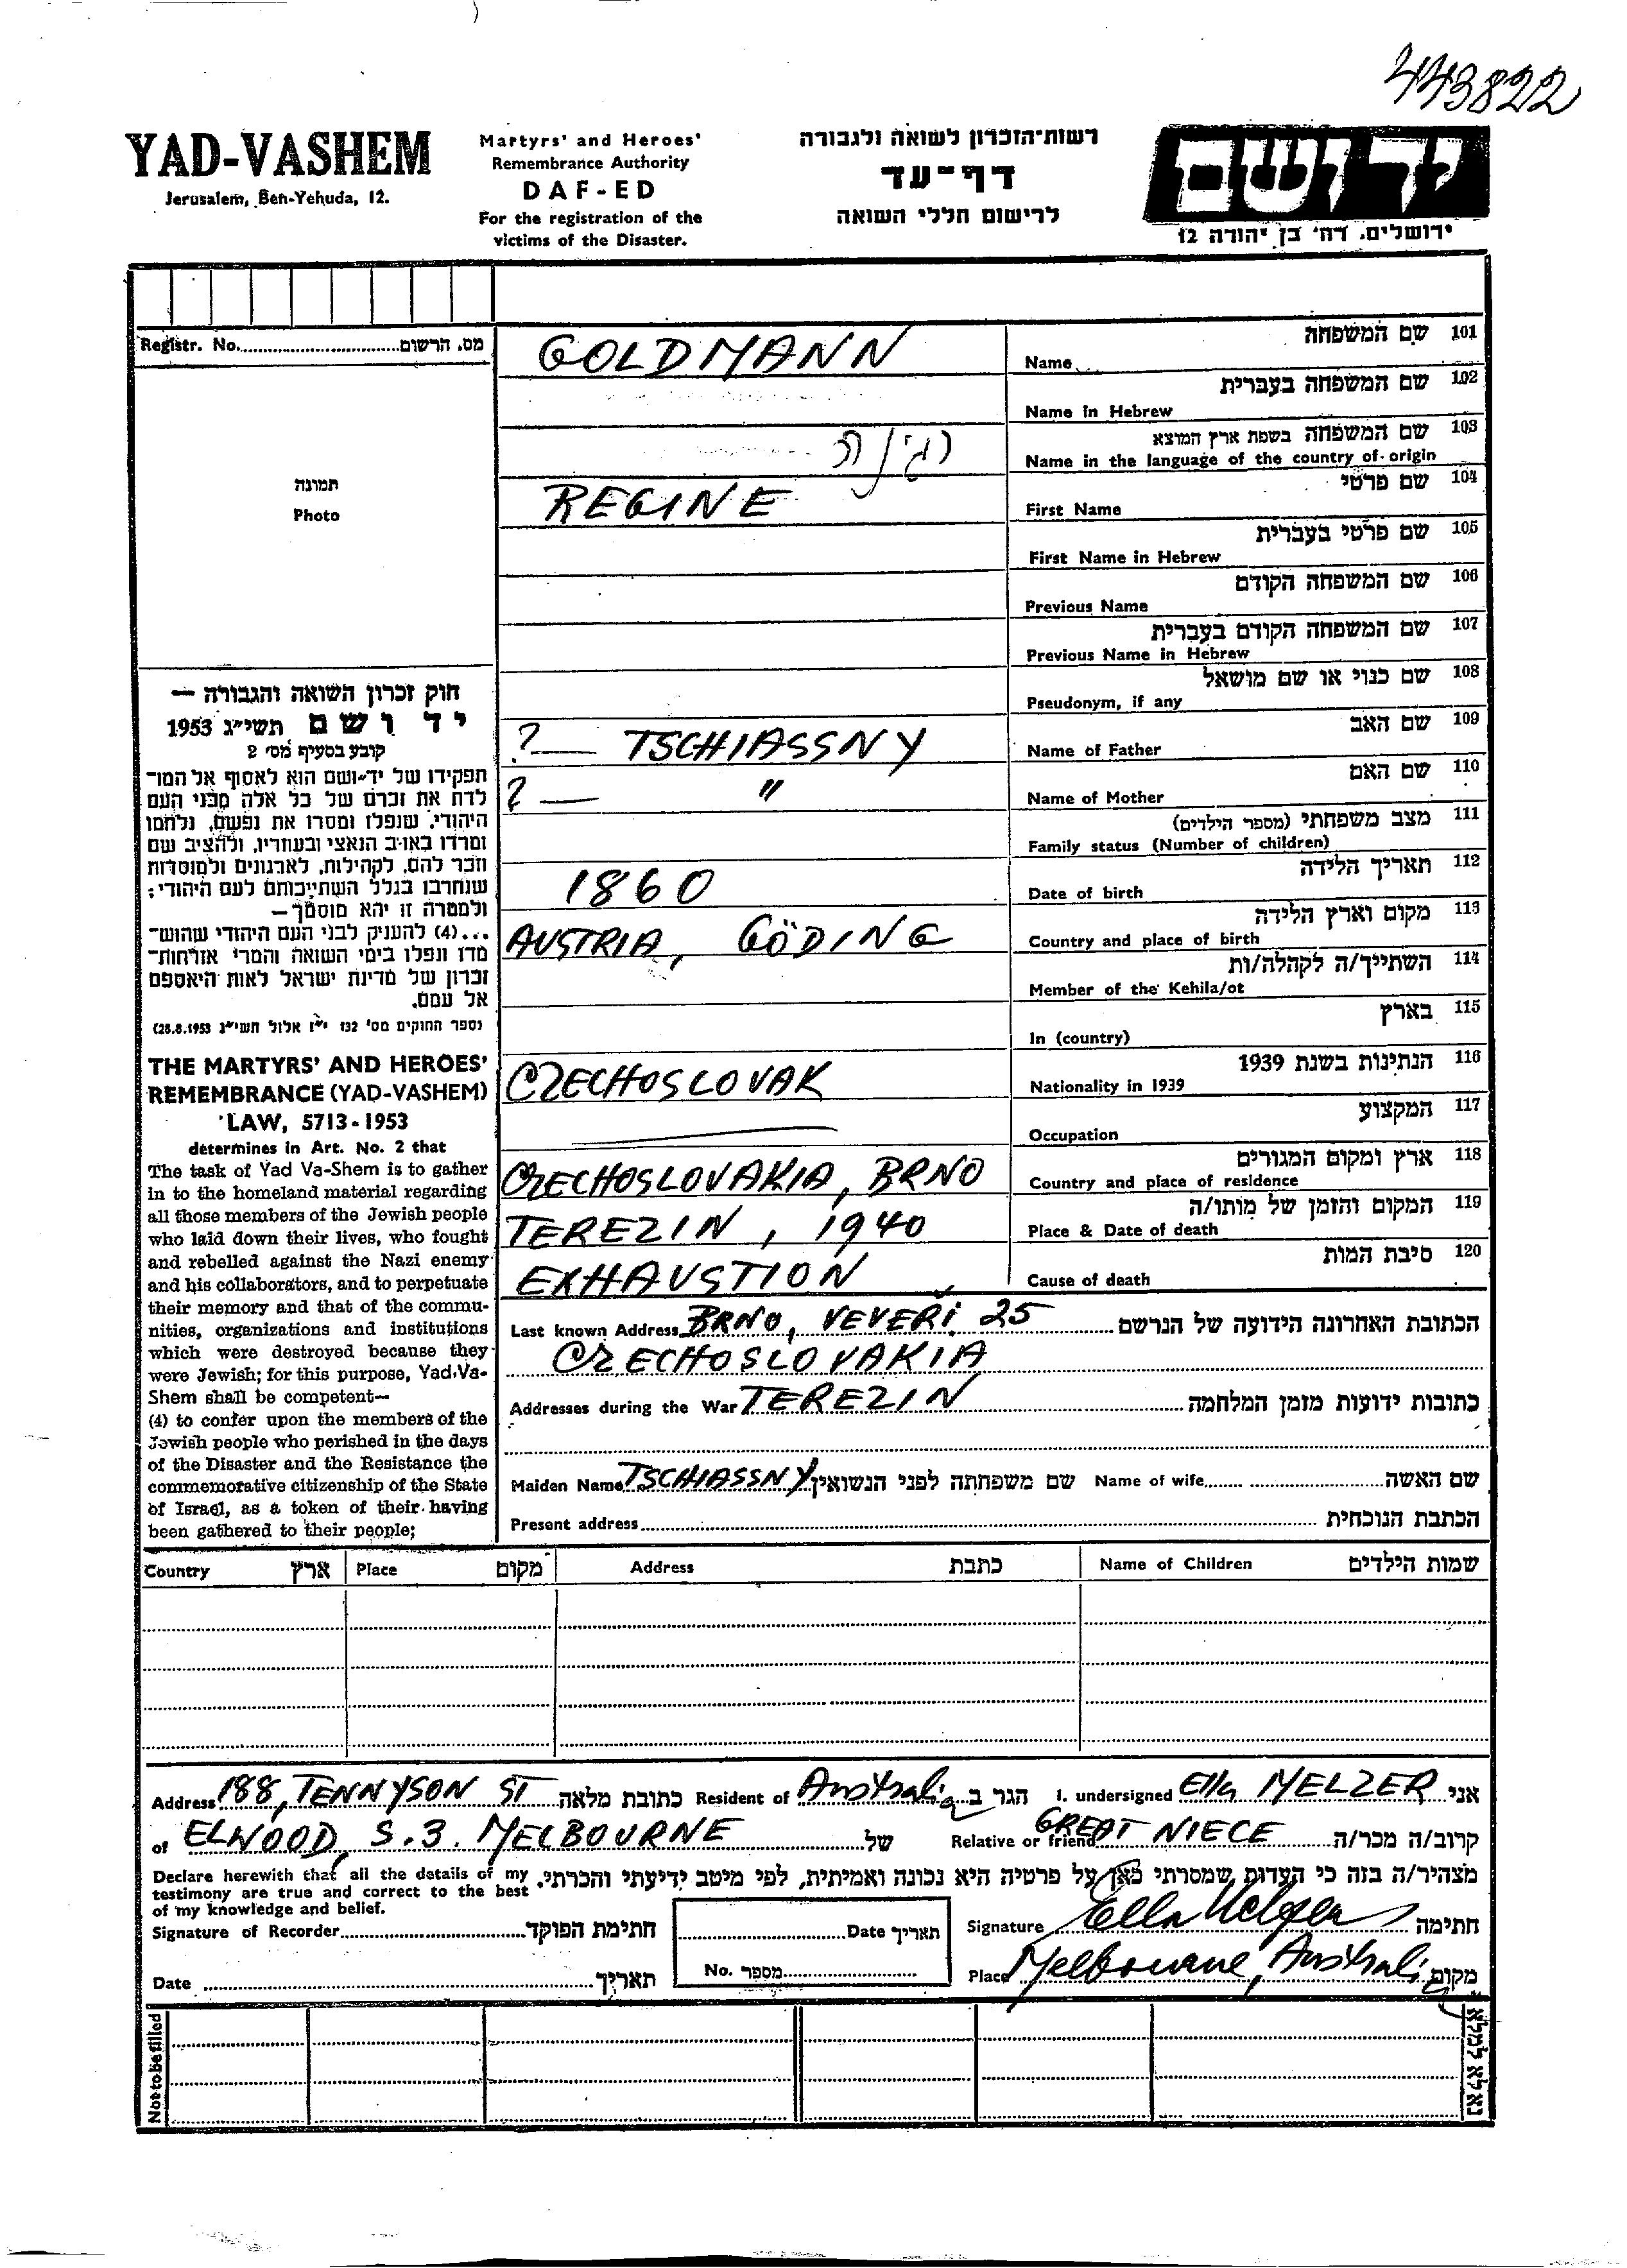 443822
YAD-VASHEM
Jerusalem, Ben-Yehuda, 12.
Martyrs' and Heroes'
Remembrance Authority
DAF-ED
For the registration of the
victims of the Disaster.
רשות־הזכרון לשואה ולגבורה
דף־עד
לרישום חללי השואה
יד ושם
ירושלים, רח' בן יהודה 12
Registr. No. מס. הרשום
תמונה
Photo
GOLDMANN
Name שם המשפחה 101
Name in Hebrew שם המשפחה בעברית 102
Name in the language of the country of origin שם המשפחה בשפת ארץ המוצא 103
REGINE
First Name שם פרטי 104
First Name in Hebrew שם פרטי בעברית 105
Previous Name שם המשפחה הקודם 106
Previous Name in Hebrew שם המשפחה הקודם בעברית 107
Pseudonym, if any שם כנוי או שם מושאל 108
? — TSCHIASSNY
Name of Father שם האב 109
? — "
Name of Mother שם האם 110
Family status (Number of children) מצב משפחתי (מספר הילדים) 111
1860
Date of birth תאריך הלידה 112
AUSTRIA, GÖDING
Country and place of birth מקום וארץ הלידה 113
Member of the Kehila/ot השתייך/ה לקהלה/ות 114
In (country) בארץ 115
CZECHOSLOVAK
Nationality in 1939 הנתינות בשנת 1939 116
Occupation המקצוע 117
CZECHOSLOVAKIA, BRNO
Country and place of residence ארץ ומקום המגורים 118
TEREZIN, 1940
Place & Date of death המקום והזמן של מותו/ה 119
EXHAUSTION
Cause of death סיבת המות 120
חוק זכרון השואה והגבורה —
יד ושם תשי״ג 1953
קובע בסעיף מס׳ 2
תפקידו של יד־ושם הוא לאסוף אל המו־
לדת את זכרם של כל אלה מבני העם
היהודי, שנפלו ומסרו את נפשם, נלחמו
ומרדו באויב הנאצי ובעוזריו, ולהציב שם
וזכר להם, לקהילות, לארגונים ולמוסדות
שנחרבו בגלל השתייכותם לעם היהודי;
ולמטרה זו יהא מוסמך—
...(4) להעניק לבני העם היהודי שהוש־
מדו ונפלו בימי השואה והמרי אזרחות־
זכרון של מדינת ישראל לאות היאספם
אל עמם.
(ספר החוקים מס׳ 132 י״ז אלול תשי״ג 28.8.1953)
THE MARTYRS' AND HEROES'
REMEMBRANCE (YAD-VASHEM)
LAW, 5713-1953
determines in Art. No. 2 that
The task of Yad Va-Shem is to gather
in to the homeland material regarding
all those members of the Jewish people
who laid down their lives, who fought
and rebelled against the Nazi enemy
and his collaborators, and to perpetuate
their memory and that of the commu-
nities, organizations and institutions
which were destroyed because they
were Jewish; for this purpose, Yad-Va-
Shem shall be competent—
(4) to confer upon the members of the
Jewish people who perished in the days
of the Disaster and the Resistance the
commemorative citizenship of the State
of Israel, as a token of their having
been gathered to their people;
Last known Address BRNO, VEVERI 25 הכתובת האחרונה הידועה של הנרשם
CZECHOSLOVAKIA
Addresses during the War TEREZIN כתובות ידיעות מזמן המלחמה
Maiden Name TSCHIASSNY שם משפחתה לפני הנשואין Name of wife שם האשה
Present address הכתבת הנוכחית
Country ארץ Place מקום Address כתבת Name of Children שמות הילדים
Address 188, TENNYSON ST כתובת מלאה Resident of Australia הגר ב I, undersigned Ella MELZER אני
of ELWOOD, S.3. MELBOURNE של Relative or friend GREAT NIECE קרוב/ה מכר/ה
Declare herewith that all the details of my
testimony are true and correct to the best
of my knowledge and belief.
מצהיר/ה בזה כי העדות שמסרתי כאן על פרטיה היא נכונה ואמיתית, לפי מיטב ידיעתי והכרתי.
Signature of Recorder חתימת הפוקד
Date תאריך
Date תאריך
No. מספר
Signature Ella Melzer חתימה
Place Melbourne, Australia מקום
Not to be filled
נא לא למלא